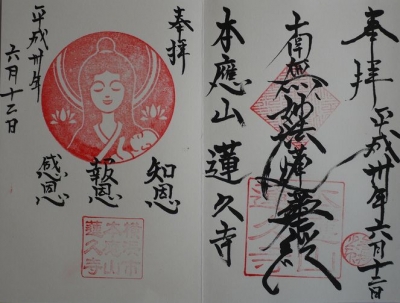 奉拝
平成卅年六月十二日
南無妙法蓮華経
本應山 蓮久寺
奉拝
知恩
報恩
感恩
平成卅年
六月十二日